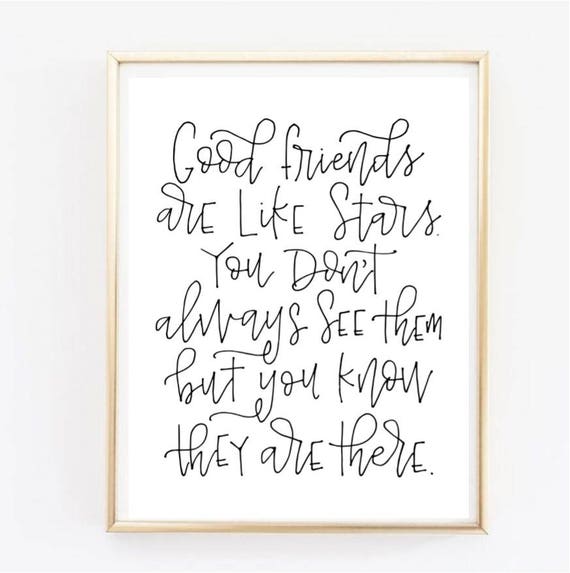 Good friends
are Like Stars.
You Don't
always SEE them
but you know
they are there.